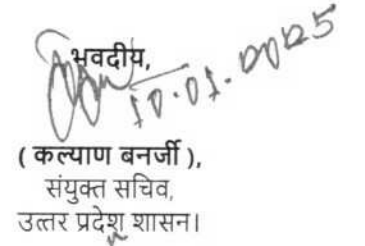 भवदीय,
10.01.2025
( कल्याण बनर्जी ),
संयुक्त सचिव,
उत्तर प्रदेश शासन।